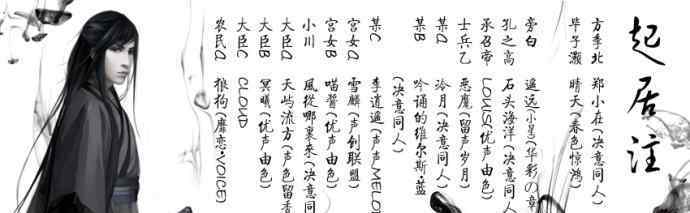 起居注
方季北 郑小在(决意同人)
毕子灏 晴天(春色惊鸿)
旁白 遥远小星(华彩の章
孔之高 石头海洋(决意同人
承召帝 LOUIS(优声由色)
士兵乙 恶魔(留声岁月)
某A 泠月(决意同人)
某B 吟诵的维尔斯·蓝
(决意同人)
某C 李逍遥(声声MELO
宫女A 雪麟(声创联盟)
宫女B 喵誓(优声由色)
小川 風從哪裏來(决意同
大臣A 天屿流方(声色留香
大臣B 冥曦(优声由色)
大臣C CLOUD
农民A 狼狗(靡恋·VOICE)